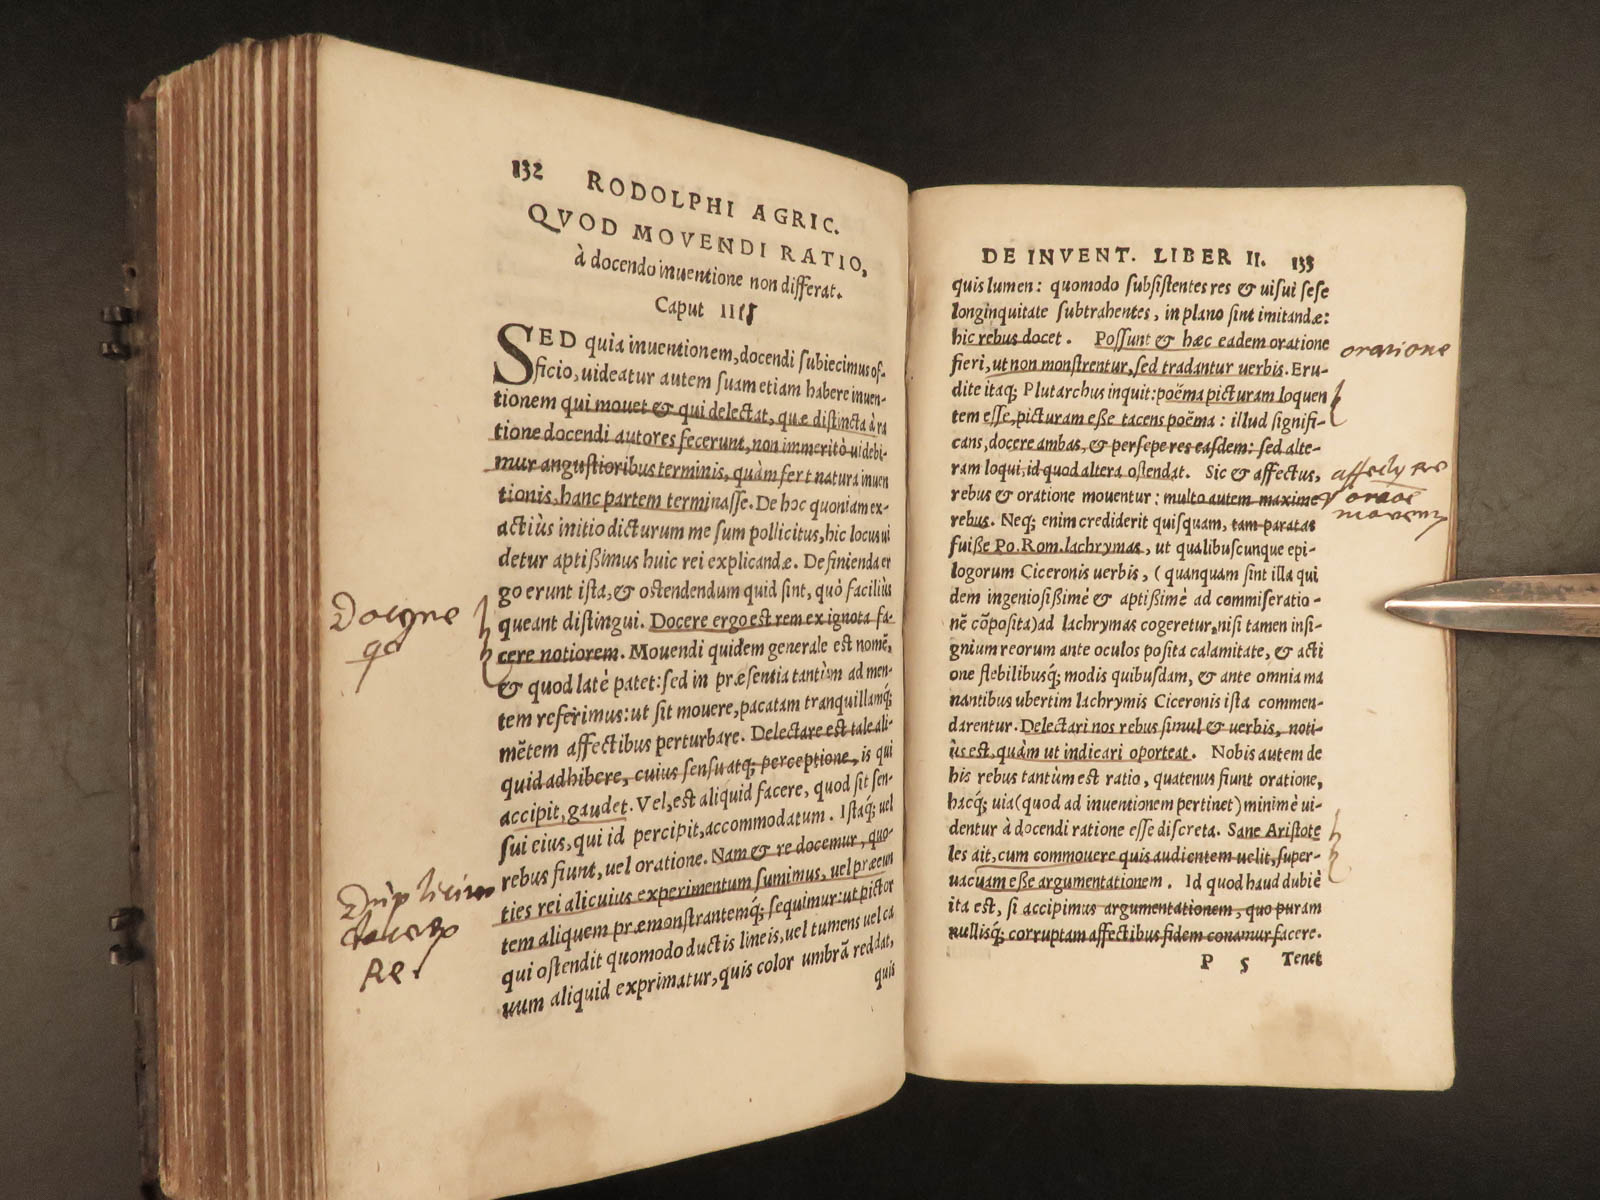 132 RODOLPHI AGRIC.
QVOD MOVENDI RATIO,
à docendo inuentione non differat.
Caput IIII
SED quia inuentionem, docendi subiecimus of-
ficio, uideatur autem suam etiam habere inuen-
tionem qui mouet & qui delectat, quæ distincta à ra
tione docendi autores fecerunt, non immeritò uidebi-
mur angustioribus terminis, quàm fert natura inuen
tionis, hanc partem terminasse. De hoc quoniam ex-
actiùs initio dicturum me sum pollicitus, hic locus ui
detur aptißimus huic rei explicandæ. Definienda er
go erunt ista, & ostendendum quid sint, quò faciliùs
queant distingui. Docere ergo est rem ex ignota fa-
cere notiorem. Mouendi quidem generale est nomẽ,
& quod latè patet: sed in præsentia tantùm ad men-
tem referimus: ut sit mouere, pacatam tranquillamq́;
mẽtem affectibus perturbare. Delectare est tale ali-
quid adhibere, cuius sensu atq; perceptione, is qui
accipit, gaudet. Vel, est aliquid facere, quod sit sen-
sui eius, qui id percipit, accommodatum. Istaq́; uel
rebus fiunt, uel oratione. Nam & re docemur, quo-
ties rei alicuius experimentum sumimus, uel præeun
tem aliquem præmonstrantemq́; sequimur: ut pictor
qui ostendit quomodo ductis lineis, uel tumens uel ca
uum aliquid exprimatur, quis color umbrã reddat,
quis
Docere
qd
Duplicim
docere
Re.
DE INVENT. LIBER II. 133
quis lumen: quomodo subsistentes res & uisui sese
longinquitate subtrahentes, in plano sint imitandæ:
hic rebus docet. Possunt & hæc eadem oratione
fieri, ut non monstrentur, sed tradantur uerbis. Eru-
dite itaq; Plutarchus inquit: poëma picturam loquen
tem esse, picturam eße tacens poëma: illud signifi-
cans, docere ambas, & persepe res easdem: sed alte-
ram loqui, id quod altera ostendat. Sic & affectus,
rebus & oratione mouentur: multo autem maxime
rebus. Neq; enim crediderit quisquam, tam paratas
fuiße Po. Rom. lachrymas, ut qualibuscunque epi-
logorum Ciceronis uerbis, (quanquam sint illa qui
dem ingeniosißimè & aptißimè ad commiseratio-
nẽ cõposita) ad lachrymas cogeretur, nisi tamen insi-
gnium reorum ante oculos posita calamitate, & acti
one flebilibusq́; modis quibusdam, & ante omnia ma
nantibus ubertim lachrymis Ciceronis ista commen-
darentur. Delectari nos rebus simul & uerbis, noti-
ùs est, quàm ut indicari oporteat. Nobis autem de
his rebus tantùm est ratio, quatenus fiunt oratione,
hacq́; uia (quod ad inuentionem pertinet) minimè ui-
dentur à docendi ratione esse discreta. Sane Aristote
les ait, cum commouere quis audientem uelit, super-
uacuam eße argumentationem. Id quod haud dubiè
ita est, si accipimus argumentationem, quo puram
nullisq́; corruptam affectibus fidem conamur facere.
P 5 Tenet
oratione